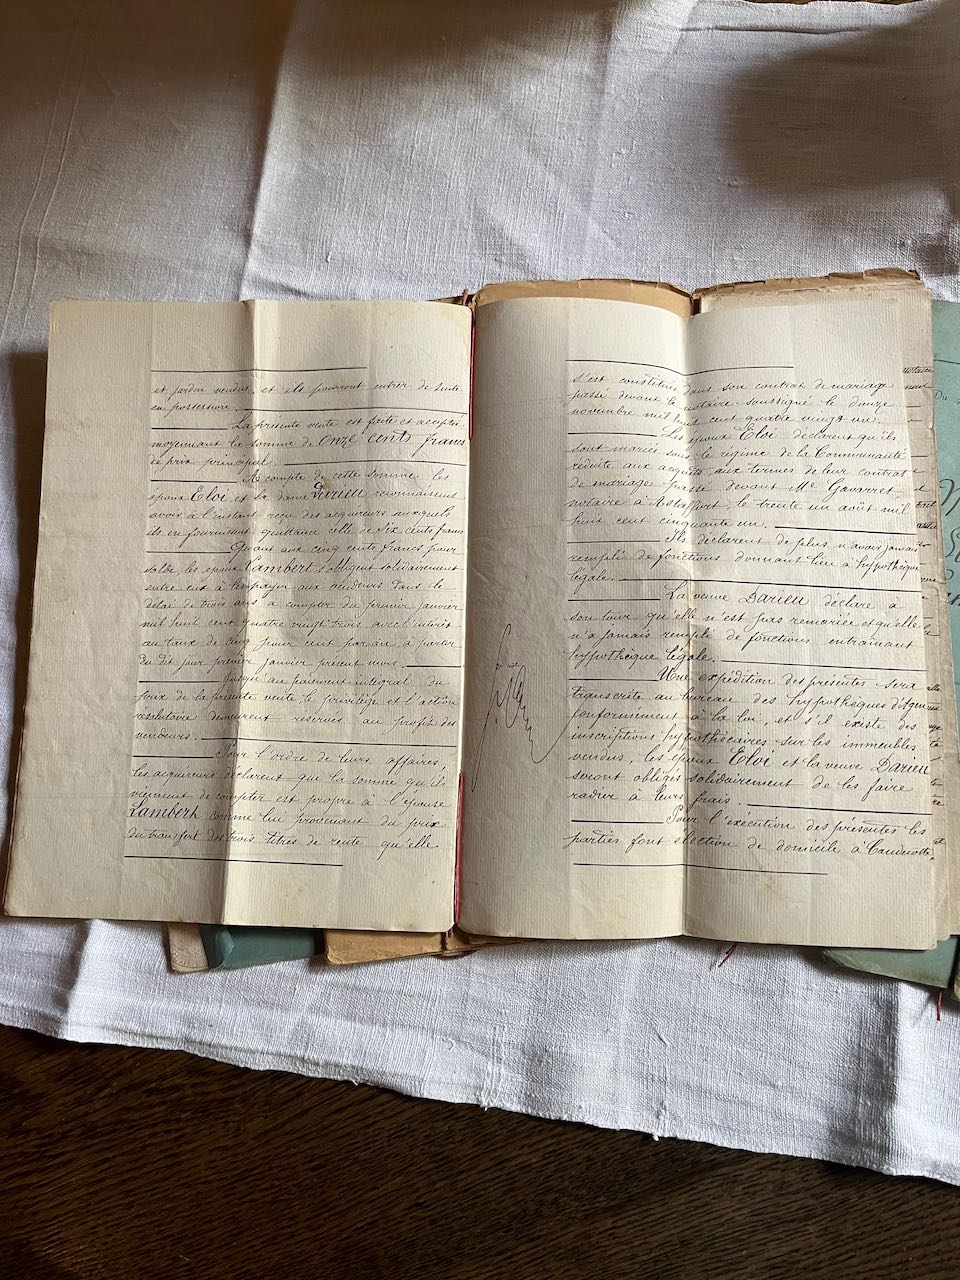 et jardin vendus, et ils pourront entrer de suite
en possession.
La présente vente est faite et acceptée
moyennant la somme de Onze cents francs
de prix principal.
A compte de cette somme les
époux Eloi et la dame Darieu reconnaissent
avoir à l'instant reçu des acquéreurs auxquels
ils en fournissent quittance celle de Six cents francs
Quant aux cinq cents francs pour
solde, les époux Lambert s'obligent solidairement
entre eux à les payer aux vendeurs dans le
délai de trois ans à compter du premier janvier
mil huit cent quatre vingt trois, avec l'intérêt
au taux de cinq pour cent par an à partir
du dit jour premier janvier présent mois.
Jusqu'au paiement intégral du
prix de la présente vente le privilége et l'action
résolutoire demeurent réservés au profit des
vendeurs.
Pour l'ordre de leurs affaires,
les acquéreurs déclarent que la somme qu'ils
viennent de compter est propre à l'épouse
Lambert comme lui provenant du prix
du transfert des trois titres de rente qu'elle
s'est constitués dans son contrat de mariage
passé devant le notaire soussigné le douze
novembre mil huit cent quatre vingt un.
Les époux Eloi déclarent qu'ils
sont mariés sous le régime de la Communauté
réduite aux acquêts aux termes de leur contrat
de mariage passé devant Me Gavarret
notaire à Astaffort, le trente un août mil
huit cent cinquante un.
Ils déclarent de plus n'avoir jamais
rempli de fonctions donnant lieu à hypothèque
légale.
La veuve Darieu déclare à
son tour qu'elle n'est pas remariée et qu'elle
n'a jamais rempli de fonctions entraînant
hypothèque légale.
Une expédition des présentes sera
transcrite au bureau des hypothèques d'Agen
conformément à la loi, et s'il existe des
inscriptions hypothécaires sur les immeubles
vendus, les époux Eloi et la veuve Darieu
seront obligés solidairement de les faire
radier à leurs frais.
Pour l'exécution des présentes les
parties font élection de domicile à Caudecoste,